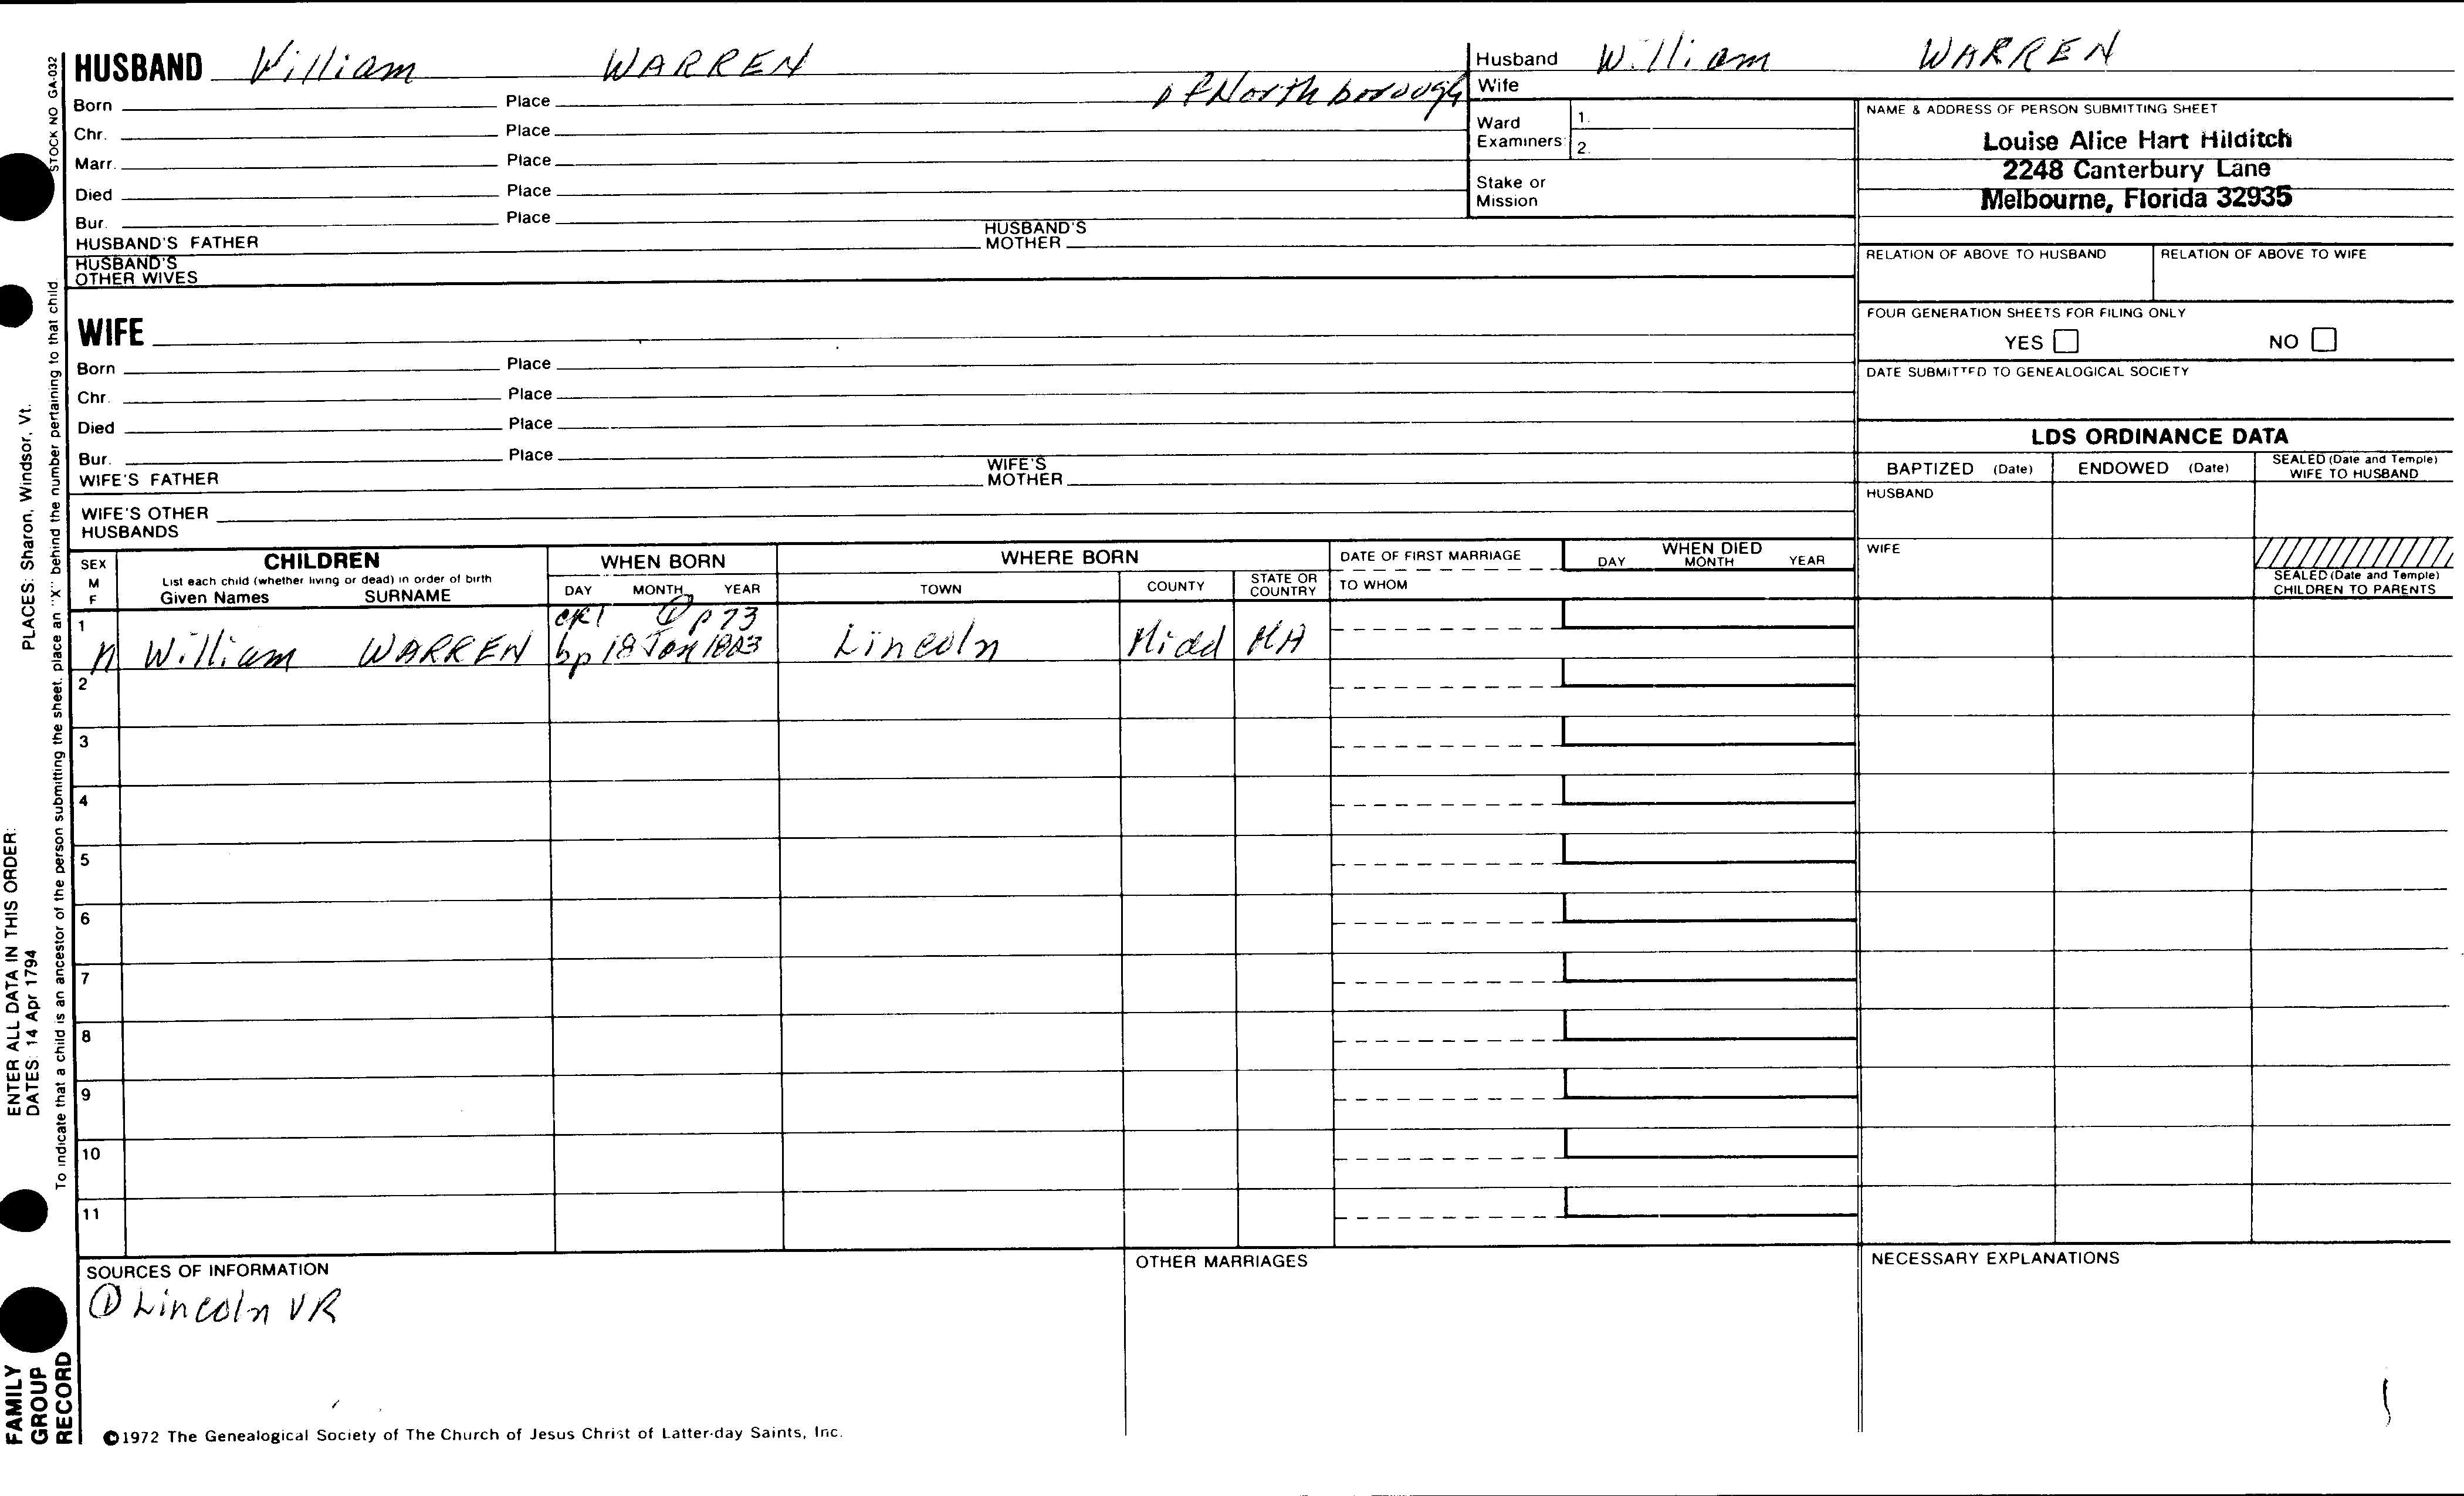 HUSBAND William WARREN
of Northborough
Born Place
Chr. Place
Marr. Place
Died Place
Bur. Place
HUSBAND'S FATHER HUSBAND'S MOTHER
HUSBAND'S OTHER WIVES
WIFE
Born Place
Chr. Place
Died Place
Bur. Place
WIFE'S FATHER WIFE'S MOTHER
WIFE'S OTHER HUSBANDS
Husband William WARREN
Wife
Ward Examiners: 1. 2.
Stake or Mission
NAME & ADDRESS OF PERSON SUBMITTING SHEET
Louise Alice Hart Hilditch
2248 Canterbury Lane
Melbourne, Florida 32935
RELATION OF ABOVE TO HUSBAND RELATION OF ABOVE TO WIFE
FOUR GENERATION SHEETS FOR FILING ONLY
YES NO
DATE SUBMITTED TO GENEALOGICAL SOCIETY
LDS ORDINANCE DATA
BAPTIZED (Date) ENDOWED (Date) SEALED (Date and Temple) WIFE TO HUSBAND
HUSBAND
WIFE
SEALED (Date and Temple) CHILDREN TO PARENTS
SEX M F
CHILDREN
List each child (whether living or dead) in order of birth
Given Names SURNAME
WHEN BORN
DAY MONTH YEAR
WHERE BORN
TOWN COUNTY STATE OR COUNTRY
DATE OF FIRST MARRIAGE
TO WHOM
WHEN DIED
DAY MONTH YEAR
1 CR1 ① p 73
M William WARREN bp 18 Jan 1803 Lincoln Midd MA
2
3
4
5
6
7
8
9
10
11
SOURCES OF INFORMATION
① Lincoln VR
OTHER MARRIAGES
NECESSARY EXPLANATIONS
©1972 The Genealogical Society of The Church of Jesus Christ of Latter-day Saints, Inc.
STOCK NO GA-032
To indicate that a child is an ancestor of the person submitting the sheet, place an "X" behind the number pertaining to that child
ENTER ALL DATA IN THIS ORDER:
DATES: 14 Apr 1794 PLACES: Sharon, Windsor, Vt.
FAMILY
GROUP
RECORD